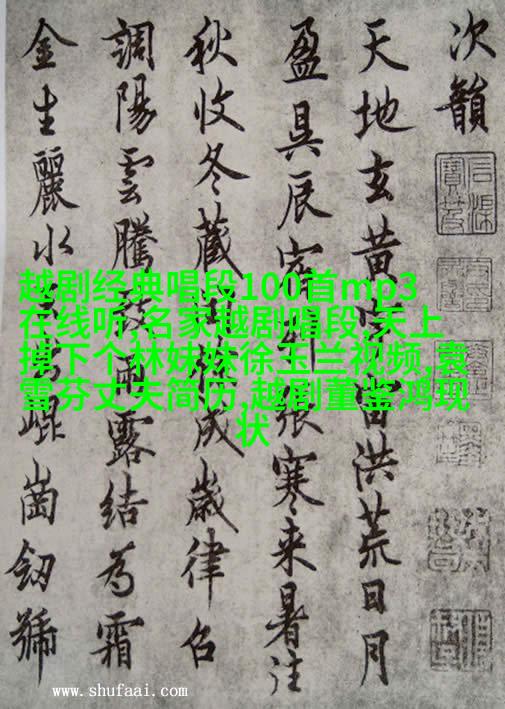 次韻
天地玄黄宙洪荒日月
盈昃辰宿列張寒来暑往
秋收冬藏成歲律召
調陽雲騰致雨露結為霜
金生麗水出崑崗劒號
越剧经典唱段100首mp3
在线听,名家越剧唱段,天上
掉下个林妹妹徐玉兰视频,袁
雪芬丈夫简历,越剧董鉴鸿现
状
www.shufaai.com